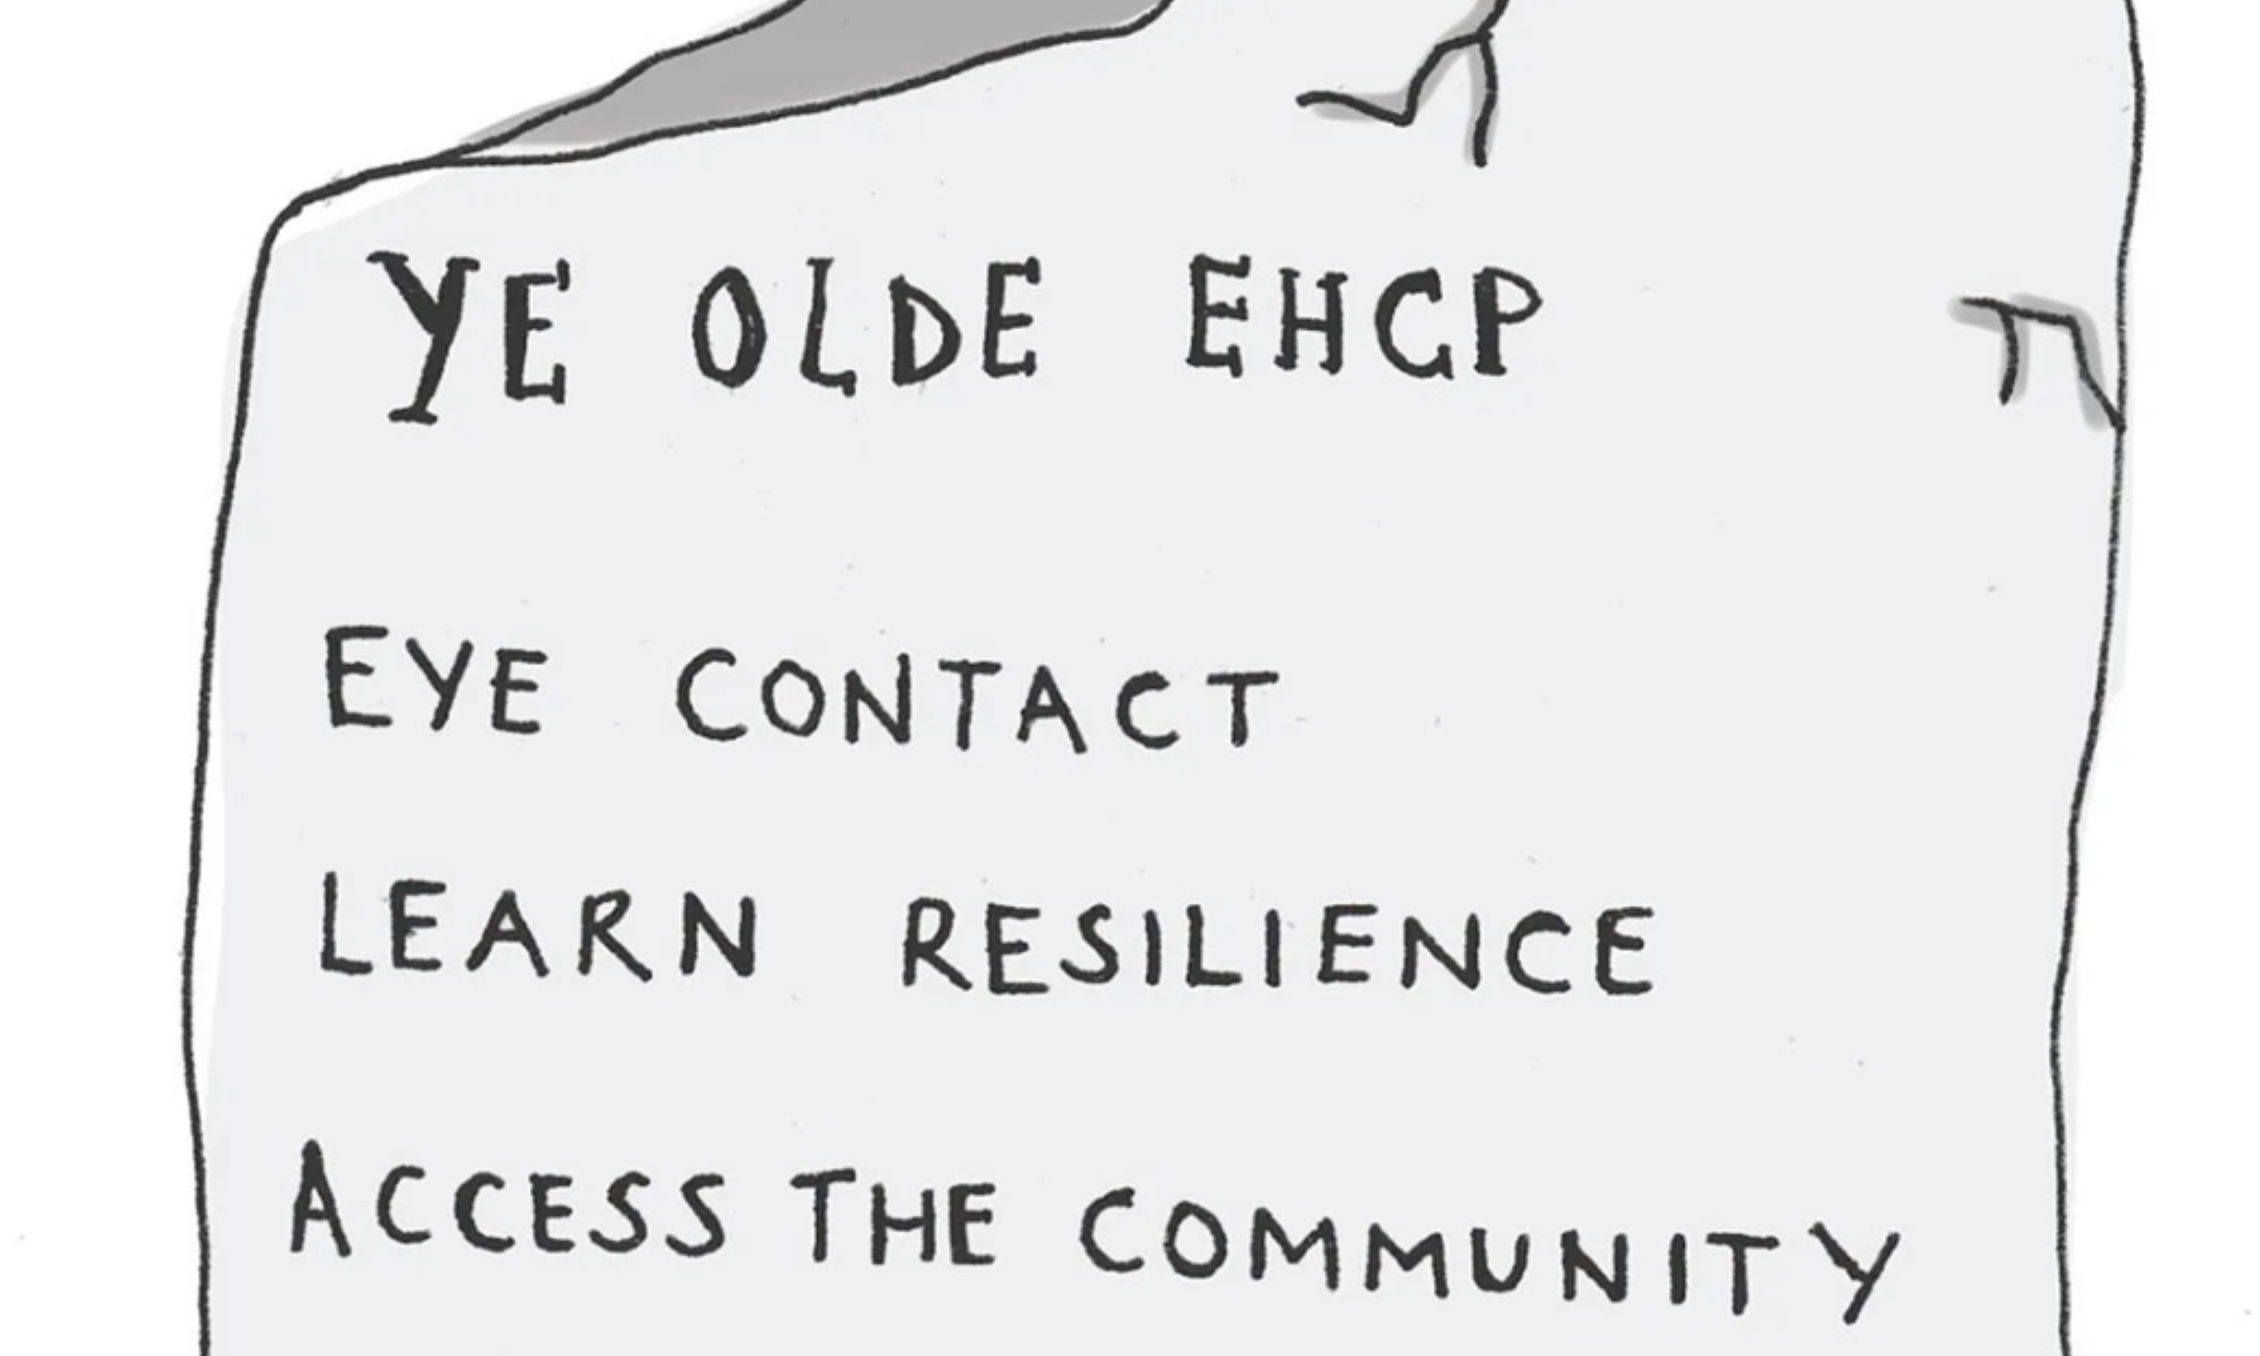 YE OLDE EHCP
EYE CONTACT
LEARN RESILIENCE
ACCESS THE COMMUNITY